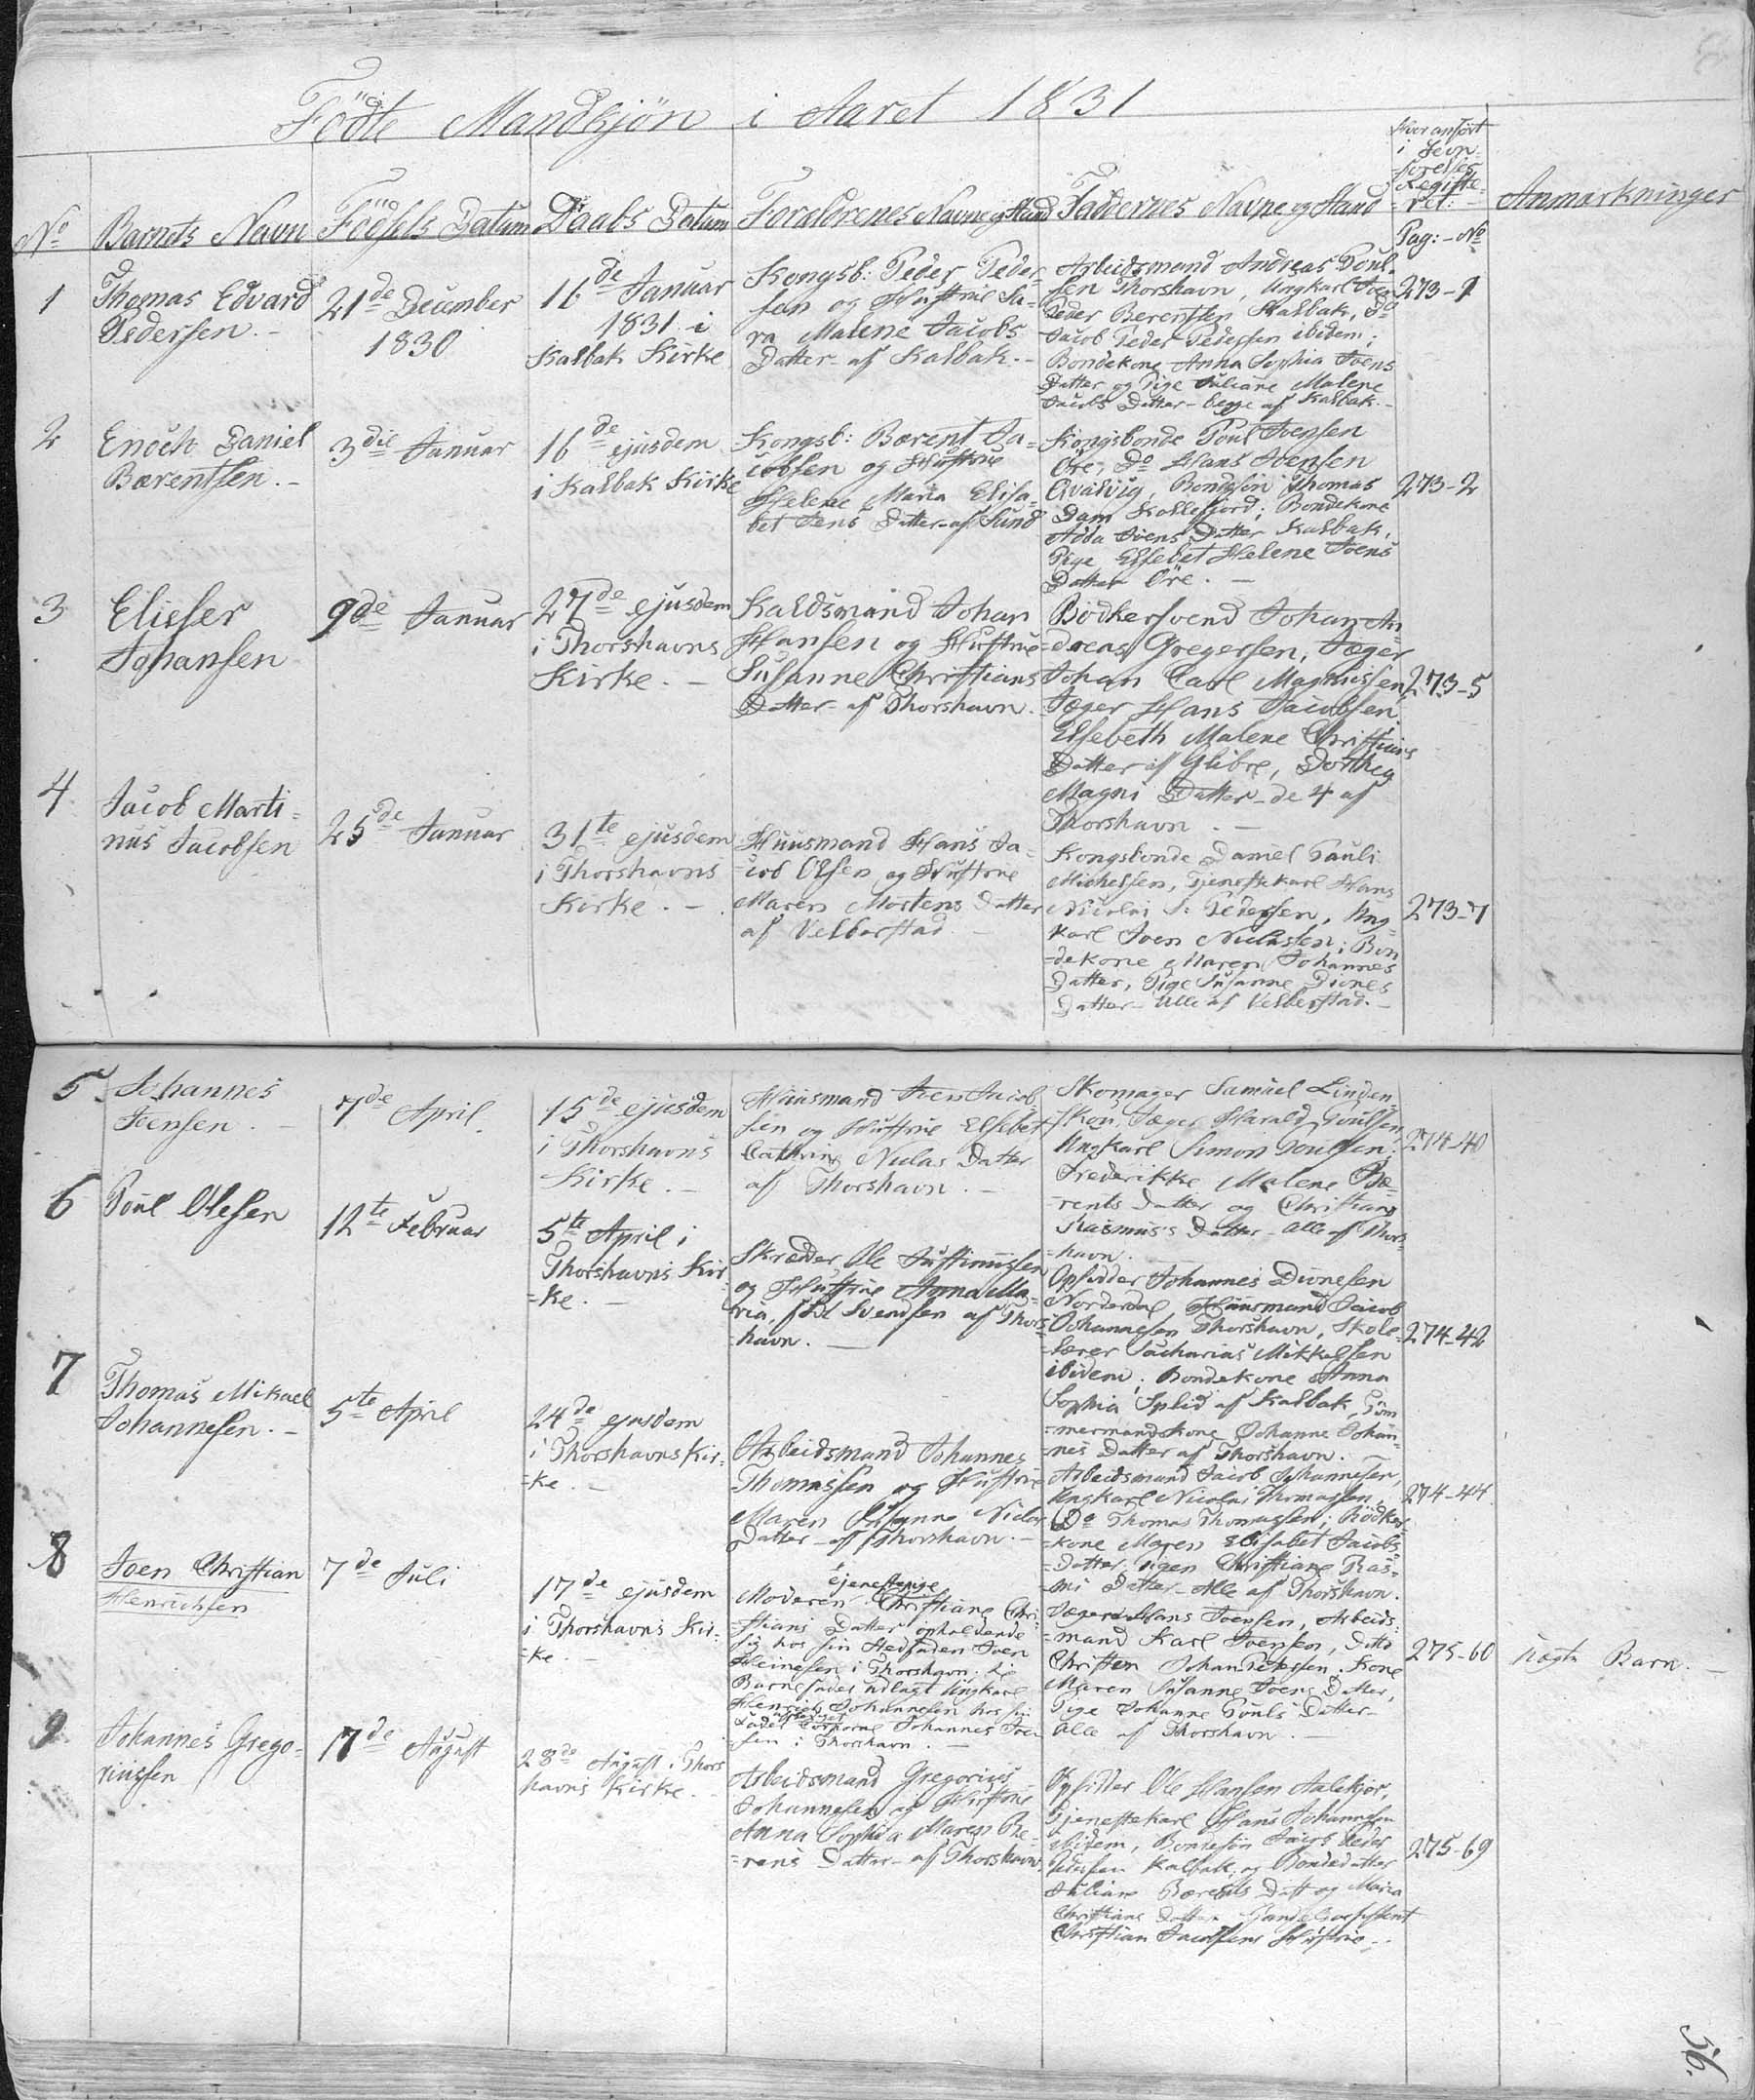 Fødte Mandkjøn i Aaret 1831
No
Barnets Navn
Födsels Datum
Daabs Datum
Forældrenes Navne og Stand
Faddernes Navne og Stand
Hvor anført
i Jevn-
førelses
Registe-
ret:
Pag: - No
Anmærkninger
1
Thomas Edvard
Pedersen. -
21de December
1830
16de Januar
1831 i
Kalbak Kirke
Kongsb: Peder Peder-
sen og Hustrue Sa-
ra Malene Jacobs
Datter - af Kalbak. -
Arbeidsmand Andreas Poul-
sen Thorshavn, Ungkarl Joen
Peder Berentsen Kalbak, Do
Jacob Peder Pedersen ibidem;
Bondekone Anna Sophia Joens
Datter og Pige Juliane Malene
Jacobs Datter - begge af Kalbak. -
273-1
2
Enoch Daniel
Bærentsen. -
3die Januar
16de ejusdem
i Kalbak Kirke
Kongsb: Bærent Ja-
cobsen og Hustrue
Helene Maria Elisa-
bet Jens Datter - af Sund
Kongsbonde Poul Joensen
Øre, Do Hans Joensen
Qvalvig, Bondesön Thomas
Dam Kollefjord; Bondekone
Adda Joens Datter Kalbak,
Pige Elsebet Helene Joens
Datter Öre. -
273-2
3
Elieser
Johansen
9de Januar
27de ejusdem
i Thorshavns
Kirke. -
Kaldsmand Johan
Hansen og Hustrue
Susanne Christians
Datter - af Thorshavn.
Bödkersvend Johan An-
dreas Gregersen, Jæger
Johan Carl Magnussen,
Jæger Hans Jacobsen.
Elsebeth Malene Christians
Datter af Glibre, Dorthea
Magni Datter - de 4 af
Thorshavn. -
273-5
4
Jacob Marti-
nus Jacobsen
25de Januar
31te ejusdem
i Thorshavns
Kirke. -
Huusmand Hans Ja-
cob Olsen og Hustrue
Maren Mortens Datter
af Velberstad. -
Kongsbonde Daniel Pauli
Michelsen, Tjenestekarl Hans
Nicolai J: Pedersen, Ung-
karl Joen Niclassen; Bon
-dekone Maren Johannes
Datter, Pige Susanne Diones
Datter - Alle af Velberstad. -
273-7
5
Johannes
Joensen. -
7de April.
15de ejusdem
i Thorshavns
Kirke. -
Huusmand Joen Jacob
sen og Hustrue Elsebet
Cathrine Niclas Datter
af Thorshavn. -
Skomager Samuel Linden-
skou, Jæger Harald Poulsen,
Ungkarl Simon Poulsen;
Frederikke Malene Bæ-
-rents Datter og Christiane
Rasmus's Datter - Alle af Thors-
-havn.
274-40
6
Poul Olesen
12te Februar
5te April i
Thorshavns Kir
-ke. -
Skrædder Ole Justinussen
og Hustrue Anna Ma-
ria, fød Svendsen af Thors-
-havn. -
Opsidder Johannes Dionesen
Norderdal, Huusmand Jacob
Johannesen Thorshavn, Skole-
-lærer Zacharias Mikkelsen
ibidem; Bondekone Anna
Sophia Splid af Kalbak, Töm
-mermandskone Johanne Johan-
-nes Datter af Thorshavn. -
274-42
7
Thomas Mikael
Johannesen. -
5te April
24de ejusdem
i Thorshavns Kir-
-ke. -
Arbeidsmand Johannes
Thomassen og Hustrue
Maren Susanne Niclas
Datter - af Thorshavn. -
Arbeidsmand Jacob Johannesen,
Ungkarl Nicolai Thomassen,
Do Thomas Thomassen; Bödker-
-kone Maren Elisabet Jacobs-
-Datter, Pigen Christiane Ras-
-mi Datter - Alle af Thorshavn.
274-44
8
Joen Christian
Henrichsen
7de Juli
17de ejusdem
i Thorshavns Kir-
-ke. -
Tjenestepige
Moderen Christiane Chri-
-stians Datter opholdende
sig hos sin Stedfader Joen
Heinesen i Thorshavn. Til
Barnefader udlagt Ungkarl
Henrich Johannesen hos sin
Fader Corporal Johannes Joen
sen i Thorshavn. -
Jæger Hans Joensen, Arbeids-
-mand Karl Joensen, Ditto
Christen Johan Petersen. Kone
Maren Susanne Joens Datter,
Pige Johanne Pouls Datter -
Alle af Thorshavn. -
275-60
Uægte Barn. -
9
Johannes Grego-
riussen
17de August
28de August i Thors
havns Kirke.
Arbeidsmand Gregorius
Johannesen og Hustrue
Anna Sophia Maren Be-
-rents Datter - af Thorshavn.
Opsidder Ole Hansen Aalekjer,
Tjenestekarl Hans Johannesen
ibidem, Bondesön Jacob Peder
Pedersen Kalbak, og Bondedatter
Juliane Bærents Datt og Maria
Christiane Datter
Christian Jacobsens Hustrue. -
275-69
56.